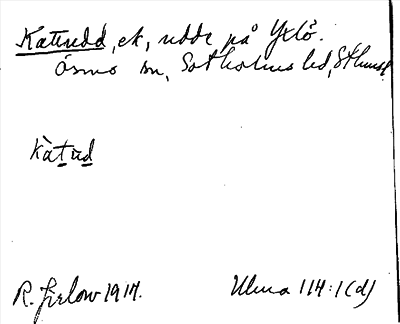 Kattudd, ek, udde på Yxlö.
Ösmo sn, Sotholms hd, Sthmsl.
kàtùd
R. 1917.
Ulma 114:1(d)